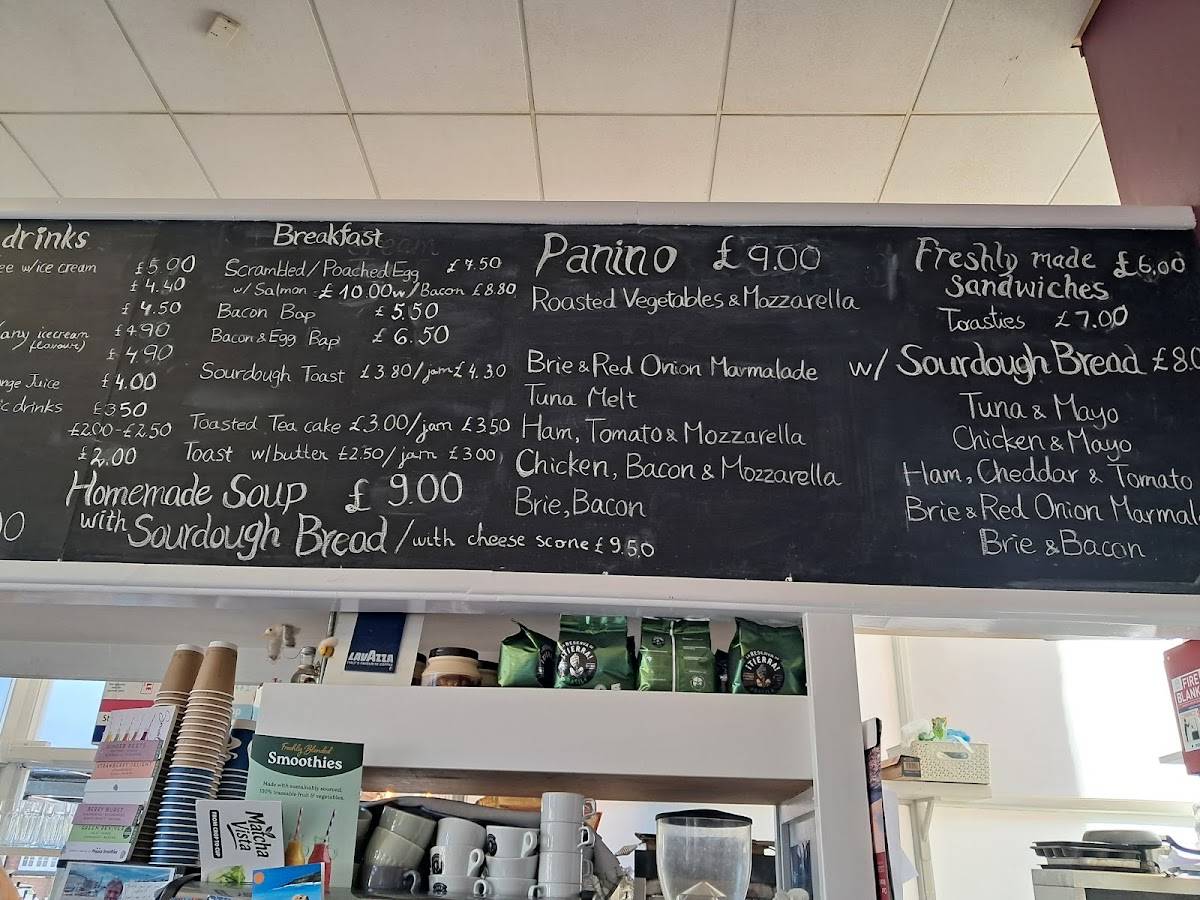 drinks
w/ice cream £5.90
£4.40
£4.50
/any icecream £4.90
/flavour)
£4.90
Juice £4.00
drinks £3.50
£2.00-£2.50
£2.00
Breakfast
Scrambled/Poached Egg £7.50
w/Salmon £10.00 w/Bacon £8.80
Bacon Bap £5.50
Bacon & Egg Bap £6.50
Sourdough Toast £3.80/jam £4.30
Toasted Tea cake £3.00/jam £3.50
Toast w/butter £2.50/jam £3.00
Homemade Soup £9.00
with Sourdough Bread/with cheese scone £9.50
Panino £9.00
Roasted Vegetables & Mozzarella
Brie & Red Onion Marmalade
Tuna Melt
Ham, Tomato & Mozzarella
Chicken, Bacon & Mozzarella
Brie, Bacon
Freshly made £6.00
Sandwiches
Toasties £7.00
w/ Sourdough Bread
Tuna & Mayo
Chicken & Mayo
Ham, Cheddar & Tomato
Brie & Red Onion
Brie & Bacon
LAVAZZA
¡TIERRA!
¡TIERRA!
Freshly Blended
Smoothies
Made with sustainably sourced,
100% traceable fruit & vegetables.
BERRY BURST
Matcha
Vista
FIRE